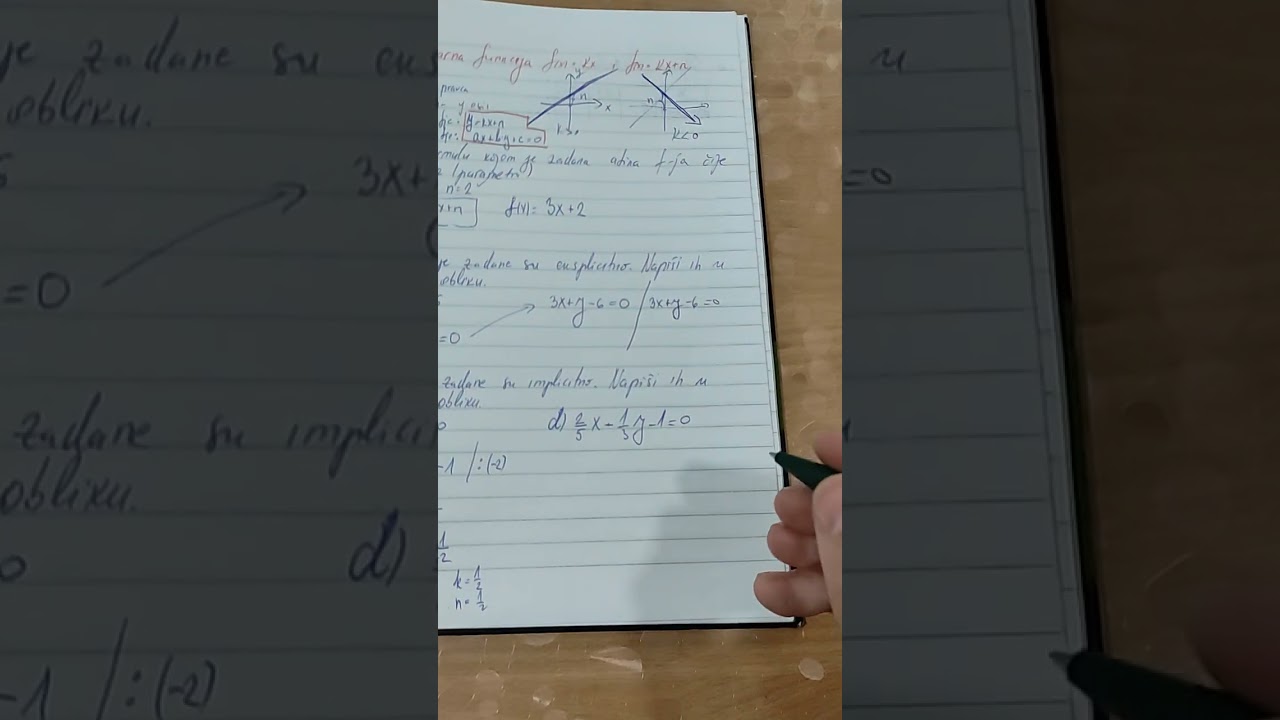 funkcija f(x)=kx i f(x)=kx+n
y
n
x
k>0
n
k<0
y=kx+n
ax+by+c=0
kojom je zadana afina f-ja čije
(parametri)
n=2
x+n
f(x)=3x+2
je zadane su eksplicitno. Napiši ih u
obliku.
3x+y-6=0 / 3x+y-6=0
=0
zadane su implicitno. Napiši ih u
obliku.
0
d) 2/5x-1/3y-1=0
-1 /:(-2)
1/2
k=1/2
n=1/2